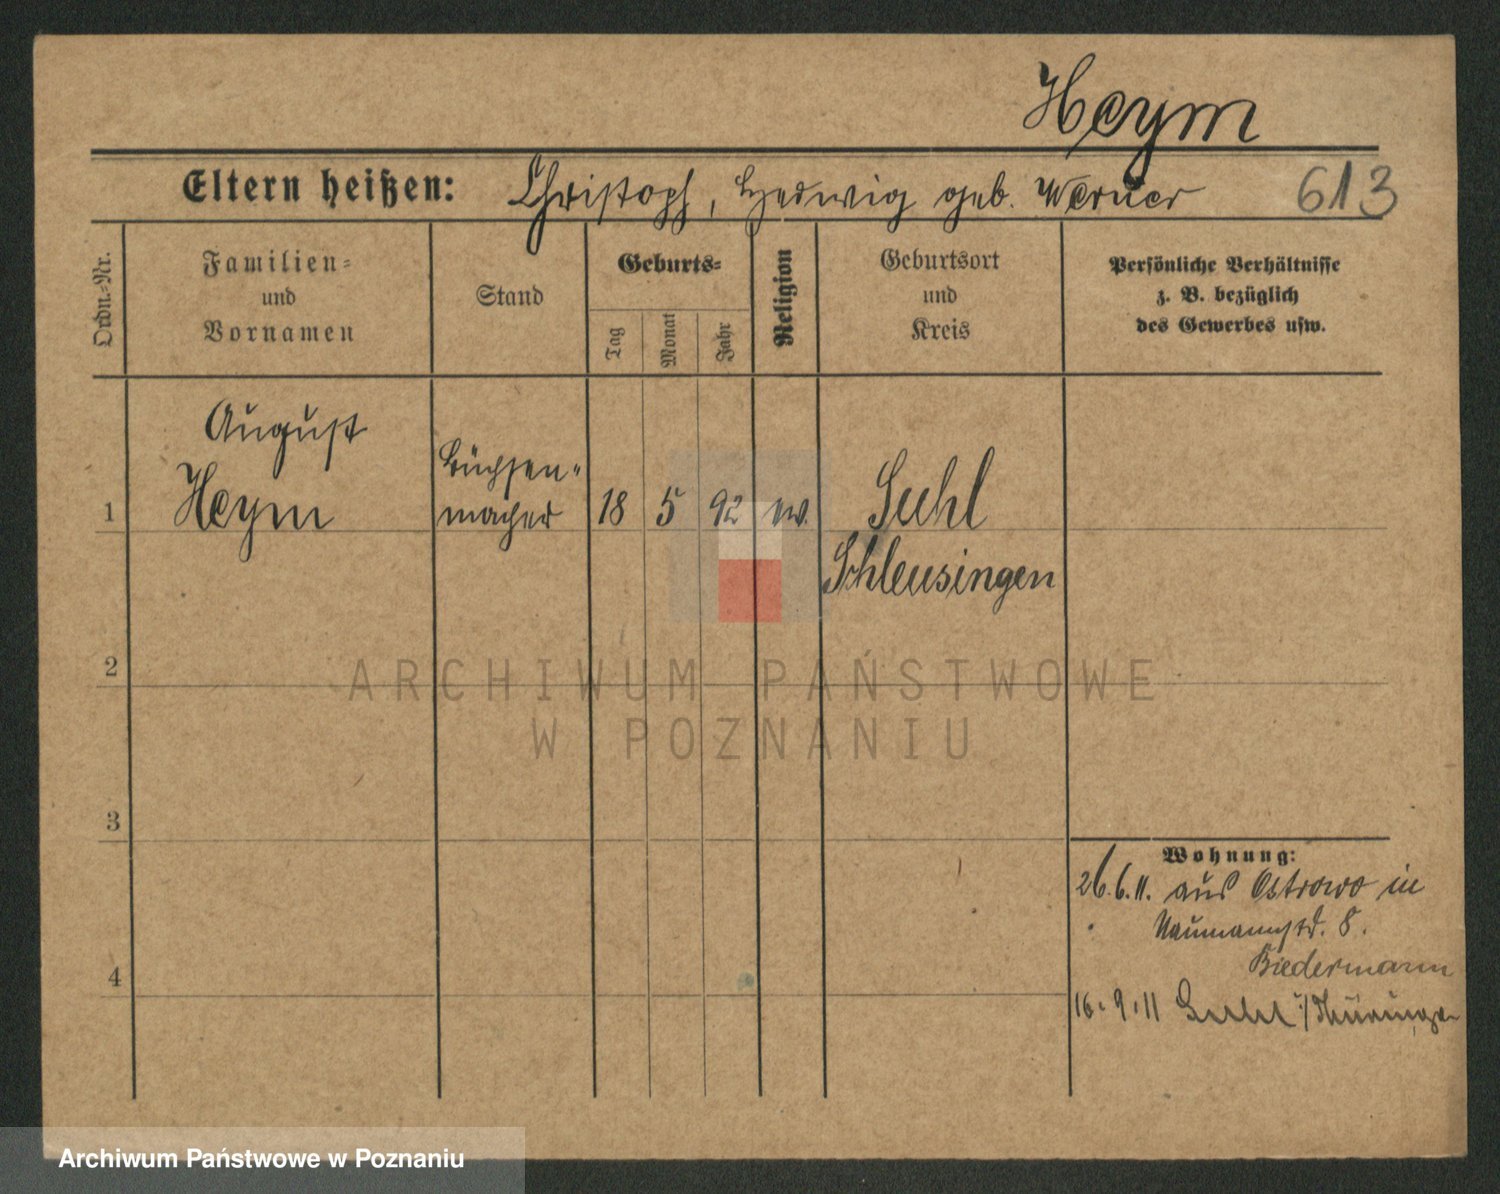 Heym
Eltern heißen: Christoph, Hedwig geb. Werner 613
Ordn.-Nr.
Familien-
und
Vornamen
Stand
Geburts-
Tag
Monat
Jahr
Religion
Geburtsort
und
Kreis
Persönliche Verhältnisse
z. B. bezüglich
des Gewerbes usw.
August
1 Heym
Büchsen-
macher
18 5 92 ev.
Suhl
Schleusingen
2
3
4
Wohnung:
26.6.11. aus Ostrowo in
Naumannstr. 8.
Biedermann
16.9.11 Suhl i/Thüringen
ARCHIWUM PAŃSTWOWE
W POZNANIU
Archiwum Państwowe w Poznaniu